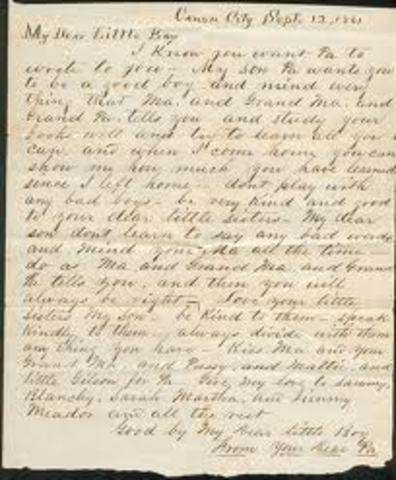 Canon City Sept. 12, 1861
My Dear Little Boy
I Know you want Pa to
wrote to you - My son Pa wants you
to be a good boy and mind every
thing that Ma. and Grand Ma. and
Grand Pa. tells you and study your
books well and try to learn all you
can and when I come home you can
show me how much you have learned
since I left home - dont play with
any bad boys - be very kind and good
to your dear little sisters - My dear
son dont learn to say any bad words
and mind your Ma all the time -
do as Ma and Grand Ma and Grand
Pa tells you, and then you will
always be right - Love your little
sisters My son - be Kind to them - speak
Kindly to them - always divide with them
any thing you have - Kiss Ma and your
Grand Ma, and Pussy, and Mattie, and
little Gilson for Pa Give my love to
Blanchy, Sarah Martha, and
Meador and all the rest
Good by My Dear little Boy
From Your Dear Pa